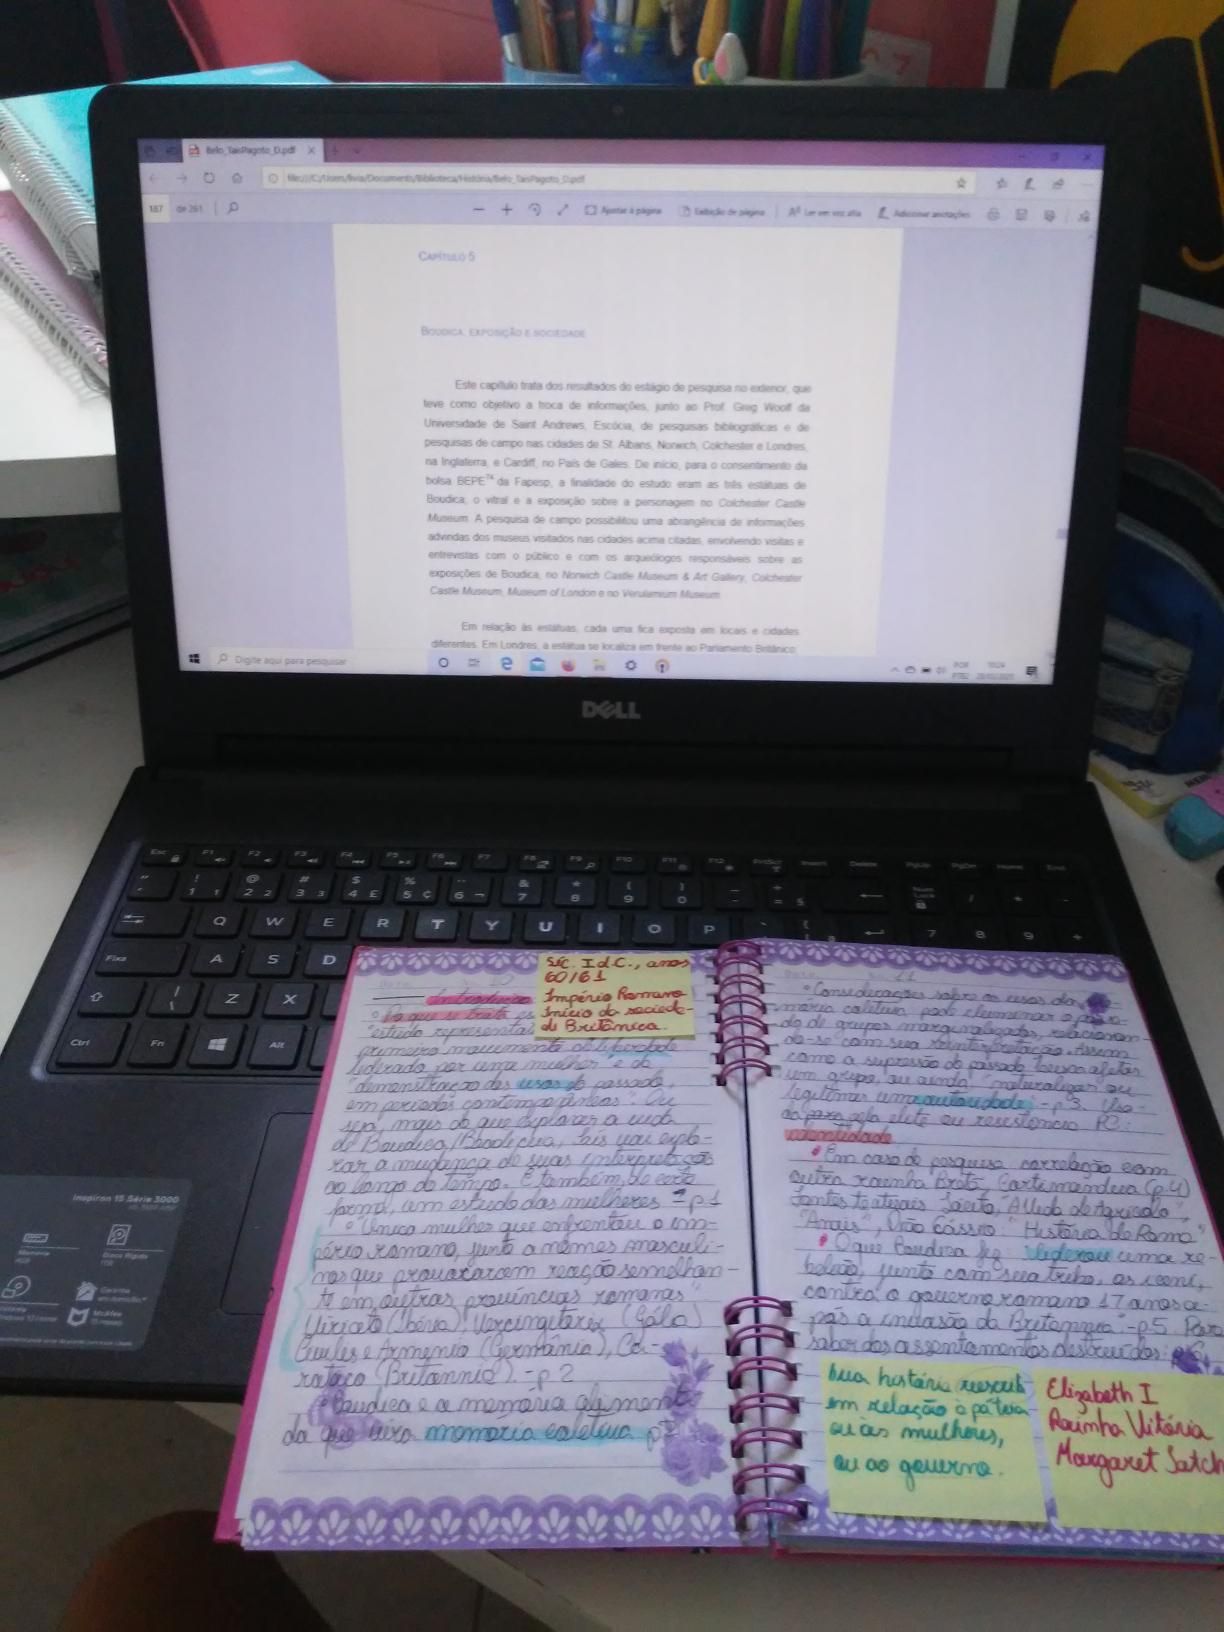 Belo_TaisPagoto_D.pdf
file:///C:/Users/livia/Documents/Biblioteca/História/Belo_TaisPagoto_D.pdf
187 de 261 Ajustar à página Exibição de página Ler em voz alta Adicionar anotações
CAPÍTULO 5
BOUDICA, EXPOSIÇÃO E SOCIEDADE
Este capítulo trata dos resultados do estágio de pesquisa no exterior, que
teve como objetivo a troca de informações, junto ao Prof. Greg Woolf da
Universidade de Saint Andrews, Escócia, de pesquisas bibliográficas e de
pesquisas de campo nas cidades de St. Albans, Norwich, Colchester e Londres,
na Inglaterra, e Cardiff, no País de Gales. De início, para o consentimento da
bolsa BEPE74 da Fapesp, a finalidade do estudo eram as três estátuas de
Boudica, o vitral e a exposição sobre a personagem no Colchester Castle
Museum. A pesquisa de campo possibilitou uma abrangência de informações
advindas dos museus visitados nas cidades acima citadas, envolvendo visitas e
entrevistas com o público e com os arqueólogos responsáveis sobre as
exposições de Boudica, no Norwich Castle Museum & Art Gallery, Colchester
Castle Museum, Museum of London e no Verulamium Museum.
Em relação às estátuas, cada uma fica exposta em locais e cidades
diferentes. Em Londres, a estátua se localiza em frente ao Parlamento Britânico
Digite aqui para pesquisar
POR
PTB2
DELL
Esc F1 F2 F3 F4 F5 F6 F7 F8 F9 F10 F11 F12 PrtScr Insert Delete PgUp PgDn Home End
Q W E R T Y U I O P
Fixa A S D
Z X
Ctrl Fn Alt
Inspiron 15 Série 3000
Séc. I d.C., anos
60/61
Império Romano
Início da socieda-
de Britânica.
Introdução
Do que se trata
"estudo representa
primeiro movimento de liberdade
liderada por uma mulher" e da
"demonstração dos usos do passado,
em períodos contemporâneos". Ou
seja, mais do que explorar a vida
de Boudica/Boadicea, Tais vai explo-
rar a mudança de suas interpretações
ao longo do tempo. É também, de certa
forma, um estudo das mulheres - p1
"Única mulher que enfrentou o im-
pério romano, junto a nomes masculi-
nos que provocaram reação semelhan-
te em outras províncias romanas"
Viriato (Ibéria), Vercingetorix (Gália)
e Armenio (Germânia), Ca-
rataco (Britannia). - p 2
Boudica e a memória
da que vira memória coletiva
11
Considerações sobre os usos da me-
mória coletiva pode eleminar o passa-
do de grupos marginalizados, relacionan-
do-se com sua reinterpretação. Assim
como a supressão do passado busca afetar
um grupo, ou ainda, "naturalizar ou
legitimar uma autoridade" - p 3. Usa-
da para pela elite ou resistência P3:
identidade
Em caso de pesquisa correlação com
outra rainha Bretã, Cartimandua (p.4)
Fontes textuais: Tácito,
"Anais", Dião Cássio: "História de Roma"
O que Boudica fez: "liderou uma re-
belião, junto com sua tribo, os iceni,
contra o governo romano 17 anos a-
pós a invasão da Britannia" - p5. Para
saber dos assentamentos destruídos:
Sua história reescrita
em relação à pátria
ou às mulheres,
ou ao governo.
Elizabeth I
Rainha Vitória
Margaret Tatch